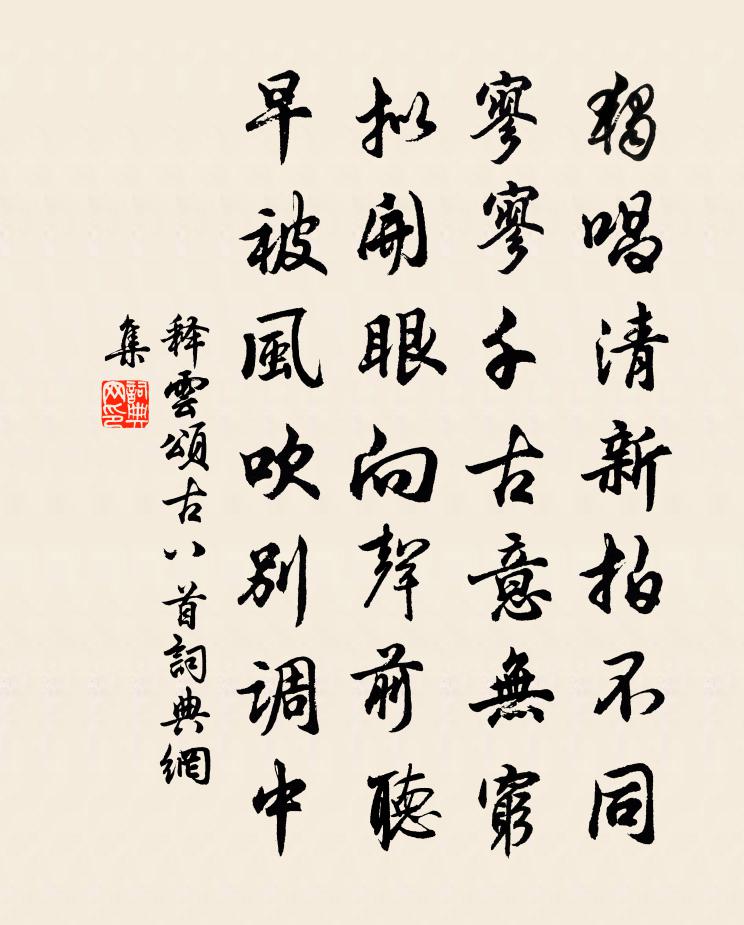 獨唱清新拍不同
寥寥千古意無窮
拟開眼向聲前聽
早被風吹別调中
释雲頌古八首詞典網
集
詞典
网印